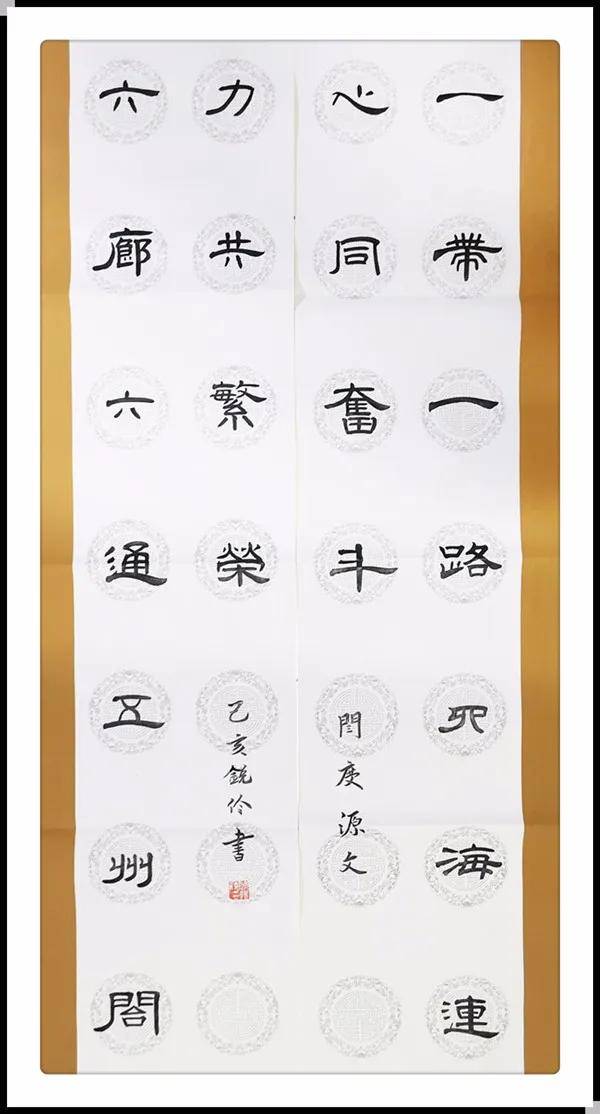 一帶一路四海連
心同奮斗
閆庚源文
六廊六通五州閤
力共繁榮
己亥銳伶書